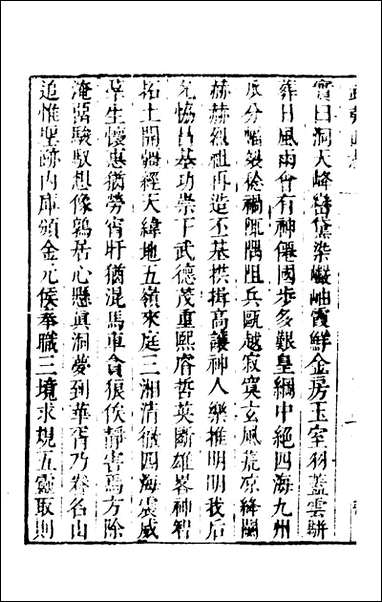 實曰洞天峰巒黛染巖岫霞鮮金房玉室羽蓋雲駢
葬日風雨會有神僊國步多艱皇綱中絕四海九州
瓜分幅裂祲禍甌隅阻兵甌越寂寞玄風荒凉絳闕
赫赫烈祖再造丕基拱揖高讓神人樂推明明我后
允恊昌基功崇下武德茂重熙睿哲英斷雄畧神智
拓土開疆經天緯地五嶺來庭三湘清徹四海震威
羣生懷惠猶勞宵旰猶混馬車貪狼俟靜害馬方除
淹留駿馭想像鶉居心懸眞洞夢到華胥乃眷名山
追惟聖跡內庫頒金元侯奉職三境求規五靈取則